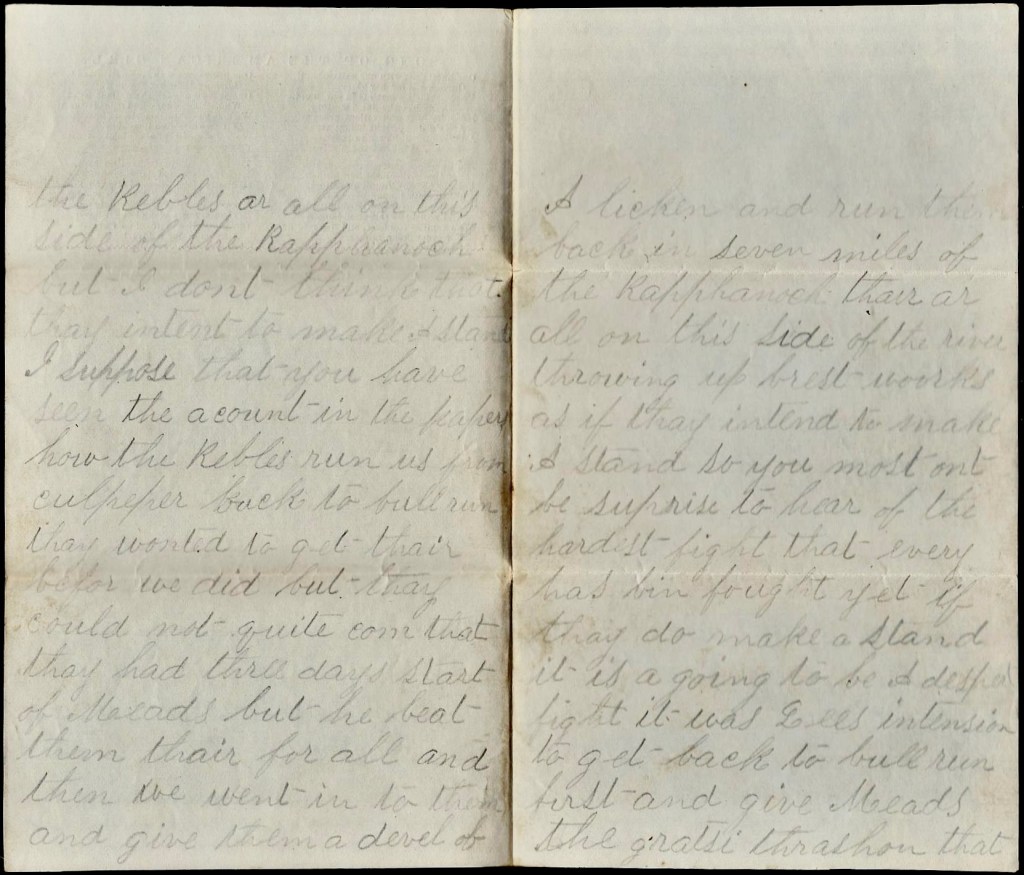 the Rebles ar all on this
side of the Rapphanoch
but I dont think that
thay intent to make A stand
I suppose that you have
seen the acount in the papers
how the Rebles run us from
culpeper back to bull run
thay wonted to get thair
befor we did but thay
could not quite com that
thay had three days start
of Meads but he beat
them thair for all and
then we went in to them
and give them a devel of
A licken and run them
back in seven miles of
the Rapphanoch thair ar
all on this side of the river
throwing up brest works
as if thay intend to make
A stand so you most ont
be suprise to hear of the
hardest fight that every
has bin fought yet if
thay do make a stand
it is a going to be A
fight it was Lees intension
to get back to bull run
first and give Meads
the gratst thrashon that